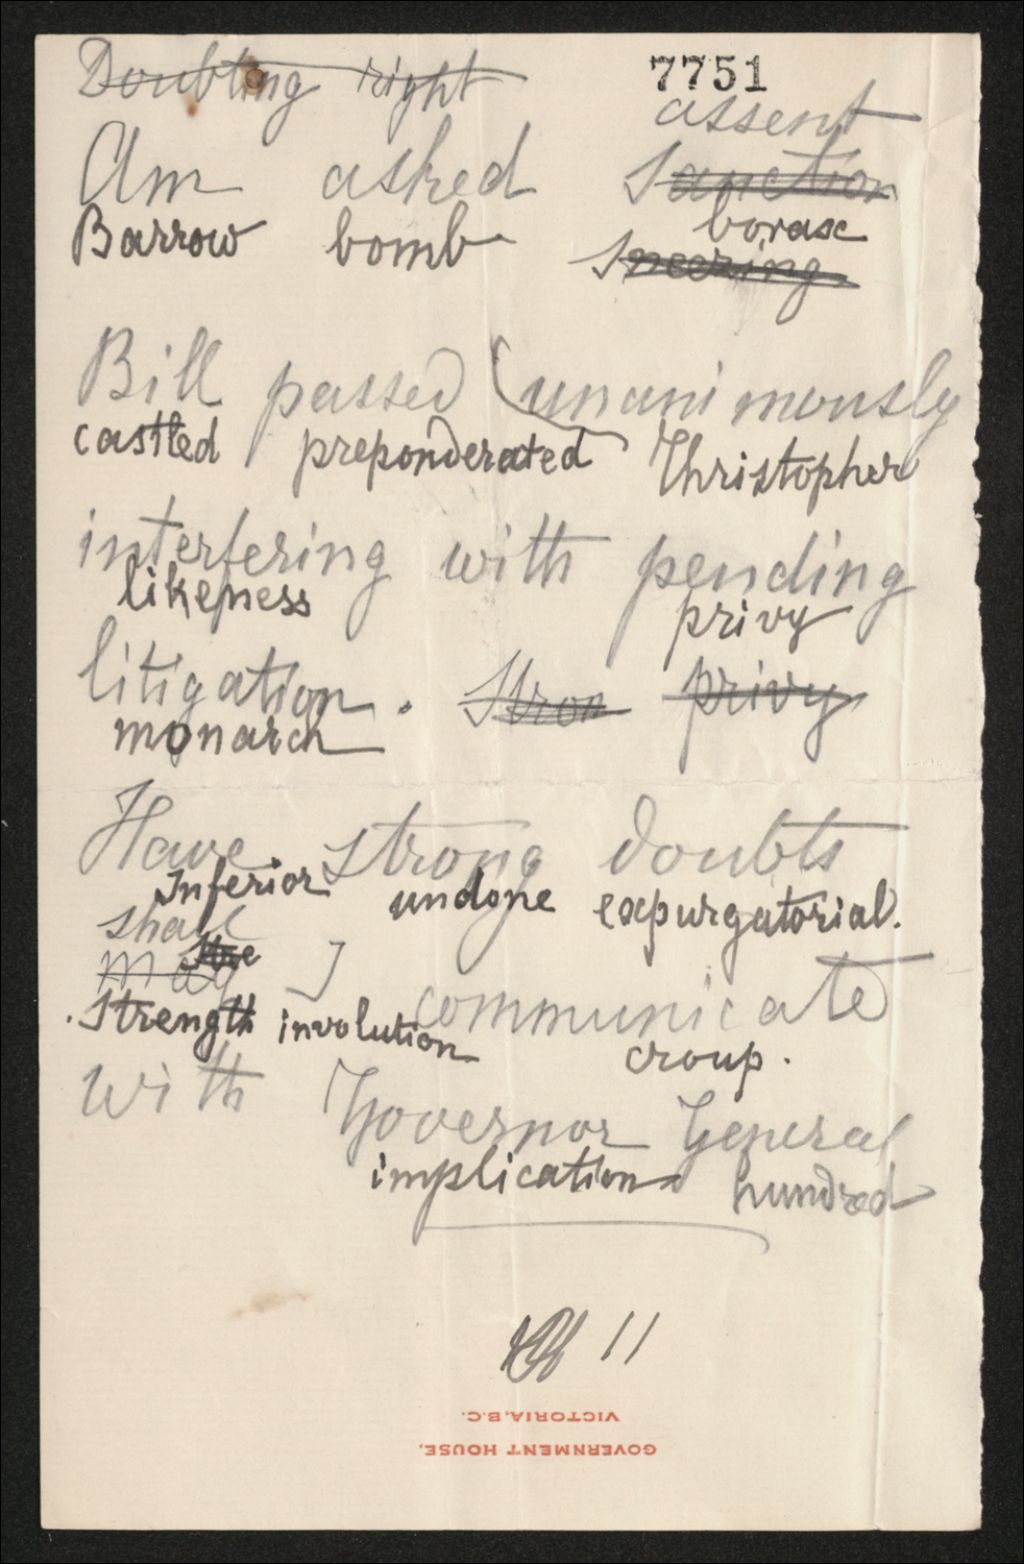 Doubting right 7751
assent
Am asked Sanction
Barrow bomb borax
Sneering
Bill passed (unanimously
castled preponderated Christopher
interfering with pending
likeness privy
litigation. Stron privy
monarch
Have strong doubts
Inferior undone expurgatorial.
shall
may ] communicate
Strength involution croup.
with Governor General
implication hundred
11
GOVERNMENT HOUSE,
VICTORIA, B.C.